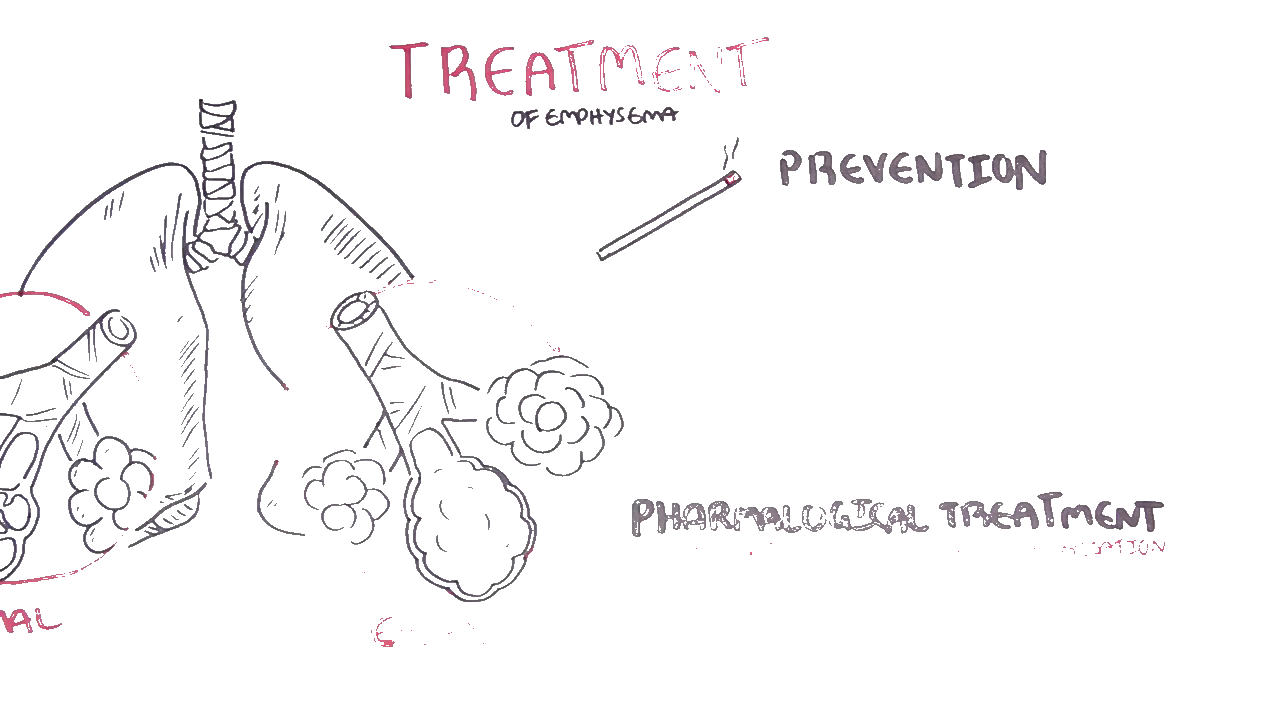 TREATMENT
OF EMPHYSEMA
PREVENTION
PHARMALOGICAL TREATMENT